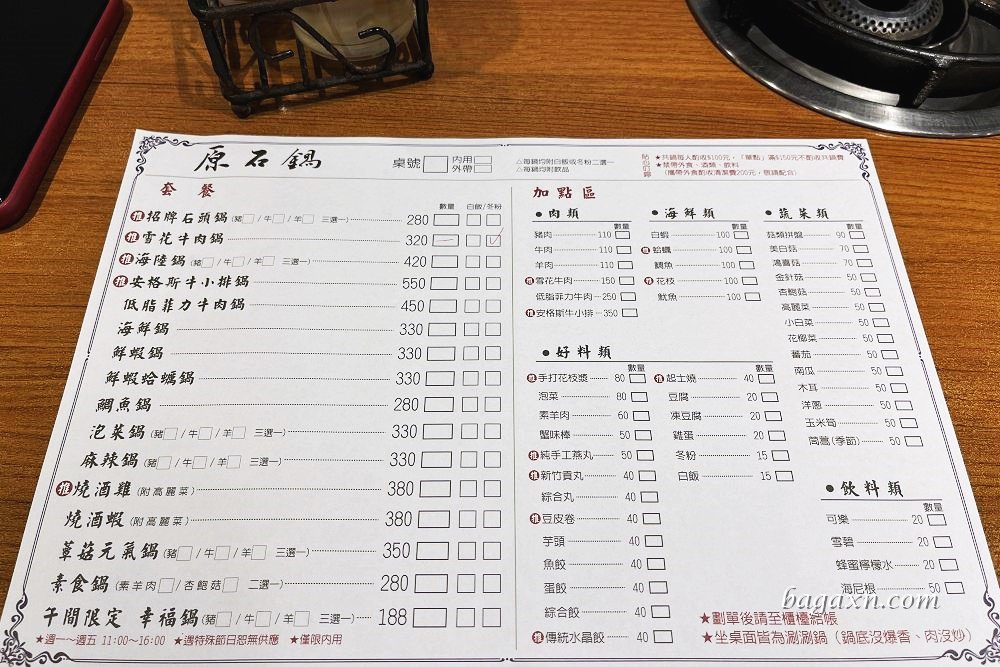 原石鍋
桌號 內用 外帶
△每鍋均附白飯或冬粉二選一
△每鍋均附飲品
貼心叮嚀
★共鍋每人酌收$100元，「單點」滿$150元不酌收共鍋費
★禁帶外食、酒類、飲料
(攜帶外食酌收清潔費200元，敬請配合)
套餐
數量 白飯/冬粉
推 招牌石頭鍋(豬/牛/羊 三選一) 280
推 雪花牛肉鍋 320
推 海陸鍋(豬/牛/羊 三選一) 420
推 安格斯牛小排鍋 550
低脂菲力牛肉鍋 450
海鮮鍋 330
鮮蝦鍋 330
鮮蝦蛤蠣鍋 330
鯛魚鍋 280
泡菜鍋(豬/牛/羊 三選一) 330
麻辣鍋(豬/牛/羊 三選一) 330
推 燒酒雞(附高麗菜) 380
燒酒蝦(附高麗菜) 380
蕈菇元氣鍋(豬/牛/羊 三選一) 350
素食鍋(素羊肉/杏鮑菇 二選一) 280
午間限定 幸福鍋(豬/牛/羊 三選一) 188
★週一～週五 11:00~16:00 ★遇特殊節日恕無供應 ★僅限內用
加點區
●肉類
數量
豬肉 110
牛肉 110
羊肉 110
推 雪花牛肉 150
低脂菲力牛肉 250
推 安格斯牛小排 350
●海鮮類
數量
白蝦 100
推 蛤蠣 100
鯛魚 100
推 花枝 100
魷魚 100
●蔬菜類
數量
菇類拼盤 90
美白菇 70
鴻喜菇 70
金針菇 50
杏鮑菇 50
高麗菜 50
小白菜 50
花椰菜 50
蕃茄 50
南瓜 50
木耳 50
洋蔥 50
玉米筍 50
茼蒿(季節) 50
●好料類
數量
推 手打花枝漿 80
泡菜 80
素羊肉 60
蟹味棒 50
推 純手工燕丸 50
推 新竹貢丸 40
綜合丸 40
推 豆皮卷 40
芋頭 40
魚餃 40
蛋餃 40
綜合餃 40
推 傳統水晶餃 40
數量
推 起士燒 40
豆腐 20
凍豆腐 20
雞蛋 20
冬粉 15
白飯 15
●飲料類
數量
可樂 20
雪碧 20
蜂蜜檸檬水 20
海尼根 50
★劃單後請至櫃檯結帳
★坐桌面皆為涮涮鍋(鍋底沒爆香、肉沒炒)
bagaxn.com